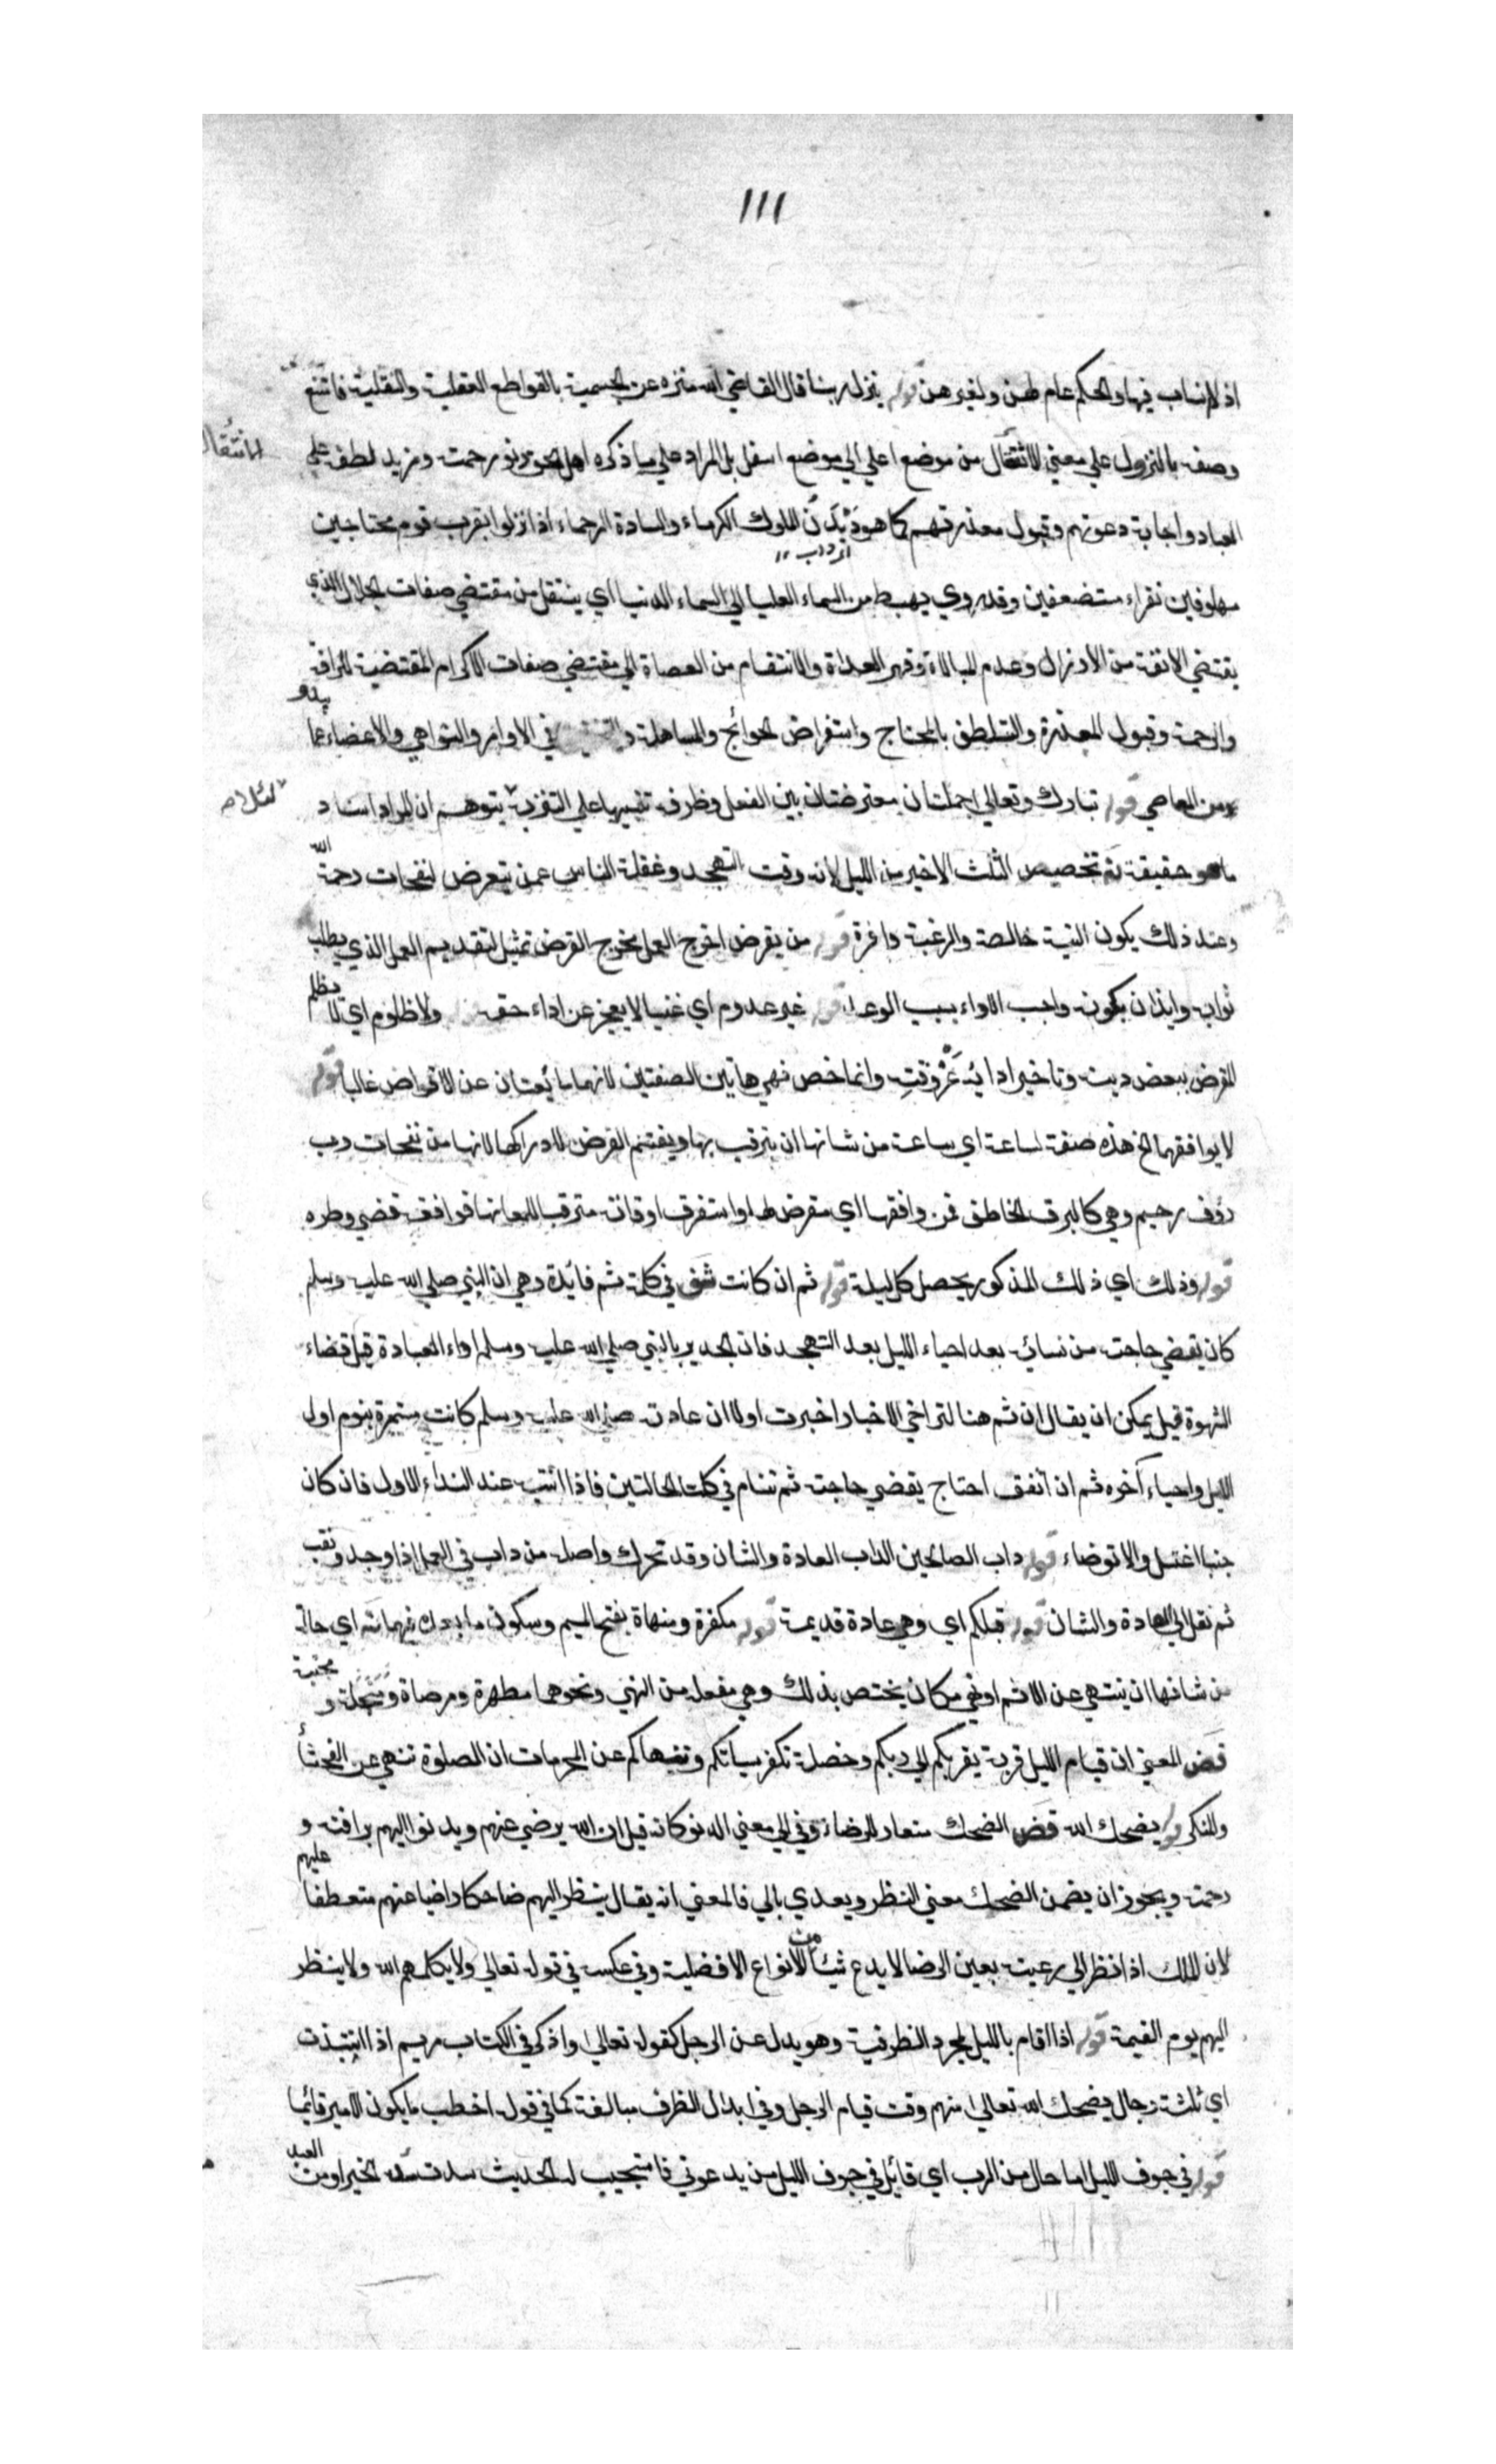 ١١١
اذ لانساب فيها والحكم عام لهن ولغيرهن قوله ينزل ربنا قال القاضي الله منزه عن الجسمية بالقواطع العقلية والنقلية فامتنع
وصفه بالنزول علي معني الانتقال من موضع اعلي الي موضع اسفل بل المراد علي ما ذكره اهل الحق دنو رحمته ومزيد لطفه علي
الانتقال
العباد واجابة دعوتهم وقبول معذرتهم كما هو ديدن الملوك الكرماء والسادة الرحماء اذا نزلوا بقرب قوم محتاجين
ملهوفين فقراء مستضعفين وقد روي يهبط من السماء العليا الي السماء الدنيا اي ينتقل من مقتضي صفات الجلال الذي
يقتضي الانفة من الارذال وعدم المبالاة وقهر العداة والانتقام من العصاة الي مقتضي صفات الاكرام المقتضية للرافة
والرحمة وقبول المعذرة والتلطف بالمحتاج واستقراض الحوائج والمساهلة و في الاوامر والنواهي والاغضاء عما يبدو
من المعاصي قوله تبارك وتعالي جملتان معترضتان بين الفعل وظرفه تنبيها علي التنزيه يتوهم ان المراد اسناد
لئلا
ما هو حقيقة تم تخصيص الثلث الاخير من الليل لانه وقت التهجد وغفلة الناس عمن يتعرض لنفحات رحمة الله
وعند ذلك يكون النية خالصة والرغبة وافرة قوله من يقرض اخرج العمل مخرج القرض تمثيل لتقديم العمل الذي يطلب
ثوابه وايذان بكونه واجب الاداء بسبب الوعد قوله غير عدوم اي غنيا لا يعجز عن اداء حقه ولا ظلوم اي لا يظلم
المقرض ببعض دينه وتاخير ادائه عن وقته وانما خص نفي هاتين الصفتين لانهما مانعتان عن الاقراض غالبا قوله
لا يوافقهما الخ هذه صفة لساعة اي ساعة من شانها ان يترقب بها ويغتنم الفرض لادراكها لانها من نفحات رب
رؤف رحيم وهي كالبرق الخاطف فمن وافقها اي تعرض لها واستغرق اوقاته مترقبا للمعانها فوافقه قضي وطره
قوله وذلك اي ذلك المذكور يحصل كل ليلة قوله ثم ان كانت في كلمة ثم فائدة وهي ان النبي صلي الله عليه وسلم
كان يقضي حاجته من نسائه بعد احياء الليل بعد التهجد فان الجدير بالنبي صلي الله عليه وسلم اداء العبادة قبل قضاء
الشهوة قيل يمكن ان يقال ان ثم هنا لتراخي الاخبار اخبرت اولا ان عادته صلي الله عليه وسلم كانت مستمرة بنوم اول
الليل واحياء آخره ثم ان اتفق احتاج يقضي حاجته ثم تنام في كلتا الحالتين فاذا انتبه عند النداء الاول فان كان
جنبا اغتسل والا توضاء قوله داب الصالحين الداب العادة والشان وقد تحرك واصله من داب في العمل اذا وجد وتعب
ثم نقل الي العادة والشان قوله قبلكم اي وهي عادة قديمة قوله مكفرة ومنهاة بفتح الميم وسكون ما بعدك فيهما تة اي حالة
من شانها ان ينتهي عن الاثم او هي مكان يختص بذلك وهي مفعلة من النهي ونحوها مطهرة ومرضاة ومبخلة ومجبنة
قض المعني ان قيام الليل قربة يقربكم الي ربكم وخصلة تكفر سيئاتكم وتنهاكم عن المحرمات ان الصلوة تنهي عن الفحشاء
والمنكر قوله يضحك الله قض الضحك مستعار للرضاء وفي الي معني الدنو كانه قيل ان الله يرضي عنهم ويدنو اليهم برافته و
رحمته ويجوز ان يضمن الضحك معني النظر ويعدي بالي فالمعني انه يقال ينظر اليهم ضاحكا راضيا عنهم متعطفا عليهم
لان الملك اذا نظر الي رعيته بعين الرضا لا يدع شيئا من الانواع الافضلية وفي عكسه في قوله تعالي ولا يكلمهم الله ولا ينظر
اليهم يوم القيمة قوله اذا قام بالليل لمجرد الظرفية وهو بدل عن الرجل كقوله تعالي واذكر في الكتاب مريم اذ انتبذت
اي ثلثة رجال يضحك الله تعالي منهم وقت قيام الرجل وفي ابدال الظرف مبالغة كما في قوله اخطب ما يكون الامير قائما
قوله في جوف الليل اما حال من الرب اي قائل في جوف الليل من يدعوني فاستجيب له الحديث سدت مسد الخبر او من العبد